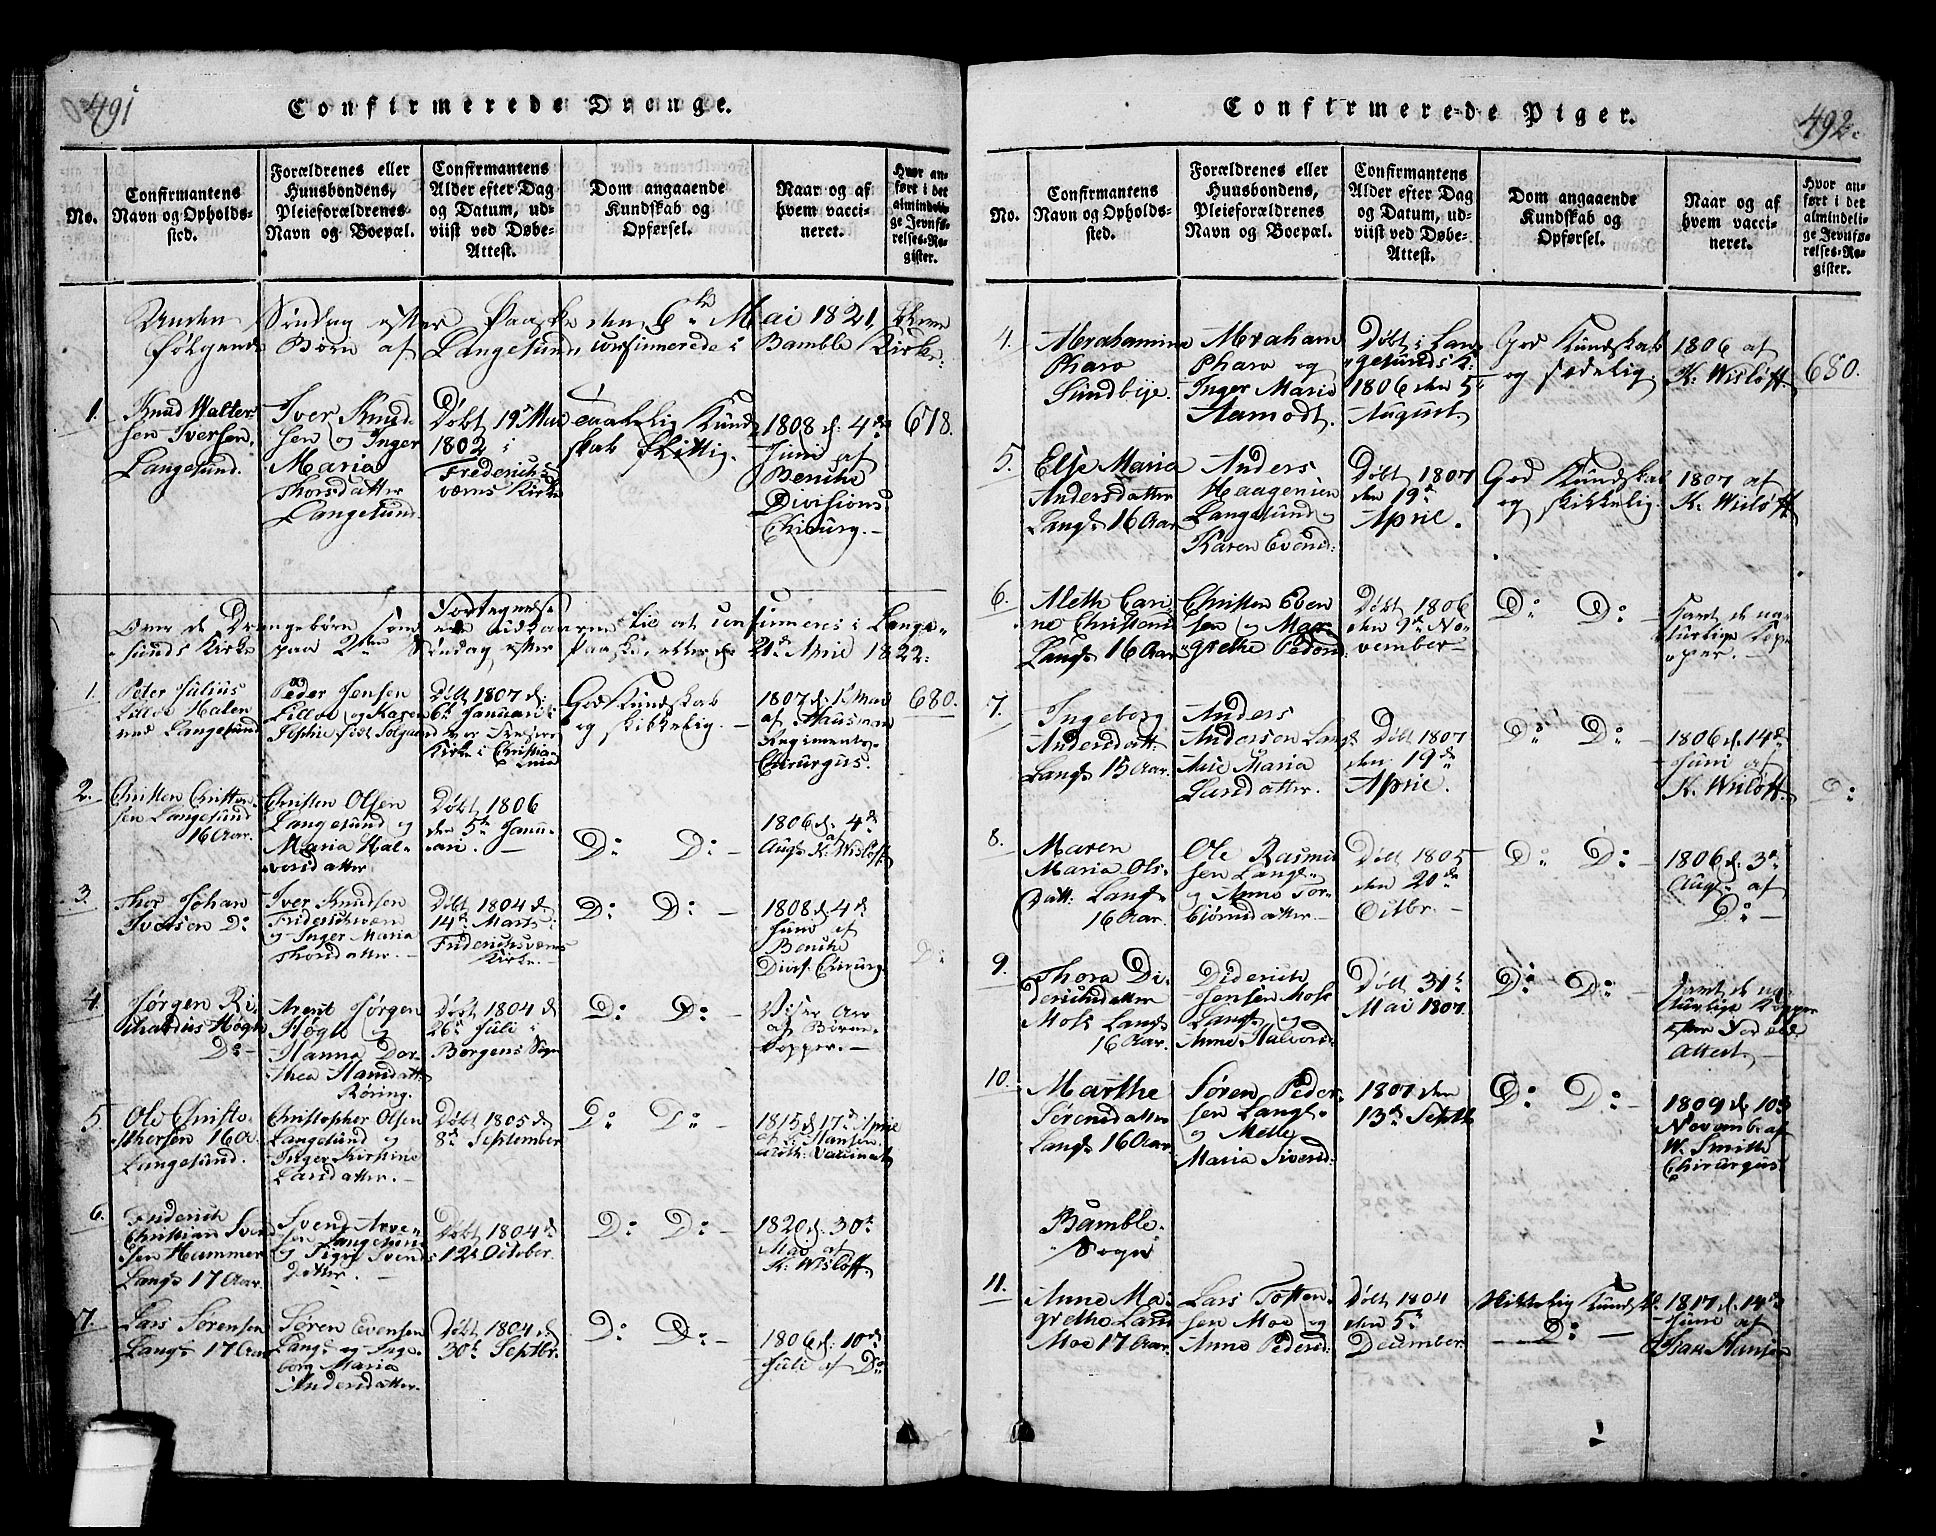 491
Confirmerede Drenge.
No.
Confirmantens
Navn og Opholds-
sted.
Forældrenes eller
Huusbondens,
Pleieforældrenes
Navn og Boepæl.
Confirmantens
Alder efter Dag
og Datum, ud-
viist ved Døbe-
Attest.
Dom angaaende
Kundskab og
Opførsel.
Naar og af
hvem vacci-
neret.
Hvor an-
ført i det
almindeli-
ge Jevnfø-
relses-Re-
gister.
Anden Søndag efter Paaske den 6te Mai 1821,
følgende Børn af Langesund confirmerede i Bamble Kirke.
1.
Knud Walter
sen Iversen.
Langesund.
Iver Knud-
sen og Inger
Maria
Thorsdatter
Langesund
Døbt 19
1802 i
Friderichs-
værns Kirke
Taalelig Kund
skab flittig.
1808 d. 4de
Juni af
Benche
Divisions
Chirurg.
678.
Fortegnelse
Over de Drengebørn som ere udkaarne til at confirmeres i Lange-
sunds Kirke paa 2den Søndag efter Paaske, efter de 21de April 1822:
1.
Peter Julius
Langesund
Peder Jensen
Døbt 1807 d.
6te Januari i
Kirke i Christia-
God Kundskab
og skikkelig.
1807 d. 1 Mai
af Hausman
Regiments-
Chirurgus.
680.
2.
Christen Christen-
sen Langesund
16 Aar.
Christen Olsen
Langesund og
Maria Hal-
vorsdatter
Døbt 1806
den 5te Janu-
ari.
D: D:
1806 d. 4de
Aug. af
K. Wisløff
3.
Thor Johan
Iversen D:
Iver Knudsen
Friderichsværn
og Inger Maria
Thorsdatter.
Døbt 1804 d.
14de Marts i
Friderichsværns
Kirke.
D: D:
1808 d. 4de
Juni af
Benche
Divis. Chirurg
D:
4.
Jørgen Ri-
chardus Høgh
D:
Arent Jørgen
Høgh og
Hanna Dor-
thea Hansdatt:
Røring.
Døbt 1804 d.
26de Juli i
Borgens Sogn
D: D:
Viser Ar
af Børne-
kopper.
5.
Ole Christo-
phersen 16 A.
Langesund.
Christopher Olsen
Langesund og
Inger Kirstine
Larsdatter.
Døbt 1805 d.
8de September
D: D:
1815 d. 17de April
af L. Hansen
6.
Friderich
Christian Svend
sen Hummer
Langs 17 Aar.
Svend Arve-
sen Langesund
og Siger Svends
datter.
Døbt 1804 d.
12te October.
D: D:
1820 d. 30te
Mai af
K. Wisløff.
7.
Lars Sørensen
Langs 17 Aar
Søren Evensen
Langs og Inge-
borg Maria
Andersdatter.
Døbt 1804 d.
30te Septbr.
D: D:
1806 d. 10de
Juli af D:
492.
Confirmerede Piger.
No.
Confirmantens
Navn og Opholds-
sted.
Forældrenes eller
Huusbondens,
Pleieforældrenes
Navn og Boepæl.
Confirmantens
Alder efter Dag
og Datum, ud-
viist ved Døbe-
Attest.
Dom angaaende
Kundskab og
Opførsel.
Naar og af
hvem vacci-
neret.
Hvor an-
ført i det
almindeli-
ge Jevnfø-
relses-Re-
gister.
4.
Abrahamine
Pharo
Sundbye.
Abraham
Pharo og
Inger Maria
Aamodt.
Døbt i Lan-
gesunds K.
1806 den 5te
August.
God Kundskab
og sædelig.
1806 af
K. Wisløff
680.
5.
Elsje Maria
Andersdatter
Langs 16 Aar
Anders
Haagensen
Langesund og
Karen Evensd:
Døbt 1807
den 19de
April.
God Kundskab
og skikkelig.
1807 af
K. Wisløff
6.
Aleth Cari-
ne Christens
Langs 16 Aar
Christen Even
sen og Mar-
grethe Pedersd:
Døbt 1806
den 9de No-
vember
D: D:
havt de na-
turlige Kop-
per.
7.
Ingeborg
Andersdatt:
Langs 15 Aar.
Anders
Andersen Langs
Anne Maria
Larsdatter.
Døbt 1807
den 19de
April.
D: D:
1806 d. 14de
Juni af
K. Wisløff.
D:
8.
Maren
Maria Ols-
Datt: Langs
16 Aar.
Ole Rasmus-
sen Langs
og Anne Tor-
bjørnsdatter.
Døbt 1805
den 20de
Octbr.
D: D:
1806 d. 3de
Aug. af
D:
9.
Thora Di-
derichsdatter
Mols Langs
16 Aar.
Diderich
Jensen Mols
Langs og
Anne Halvorsd:
Døbt 31te
Mai 1807.
D: D:
havt de na-
turlige Kopper
efter
Attest.
10.
Marthe
Sørensdatter
Langs 16 Aar.
Søren Peder-
sen Langs
og Mette
Maria Siversd:
1807 den
13de Septbr
D: D:
1809 d. 10de
Novemb. af
W. Smith
Chirurgus
Bamble
Sogn
11.
Anne Ma-
grethe Lars
Moe 17 Aar.
Lars Tosten-
sen Moe og
Anne Pedersd:
Døbt 1804
den 5te
December.
Skikkelig Kundsk.
D:
1817 d. 14de
Juni af
Isak Hansen